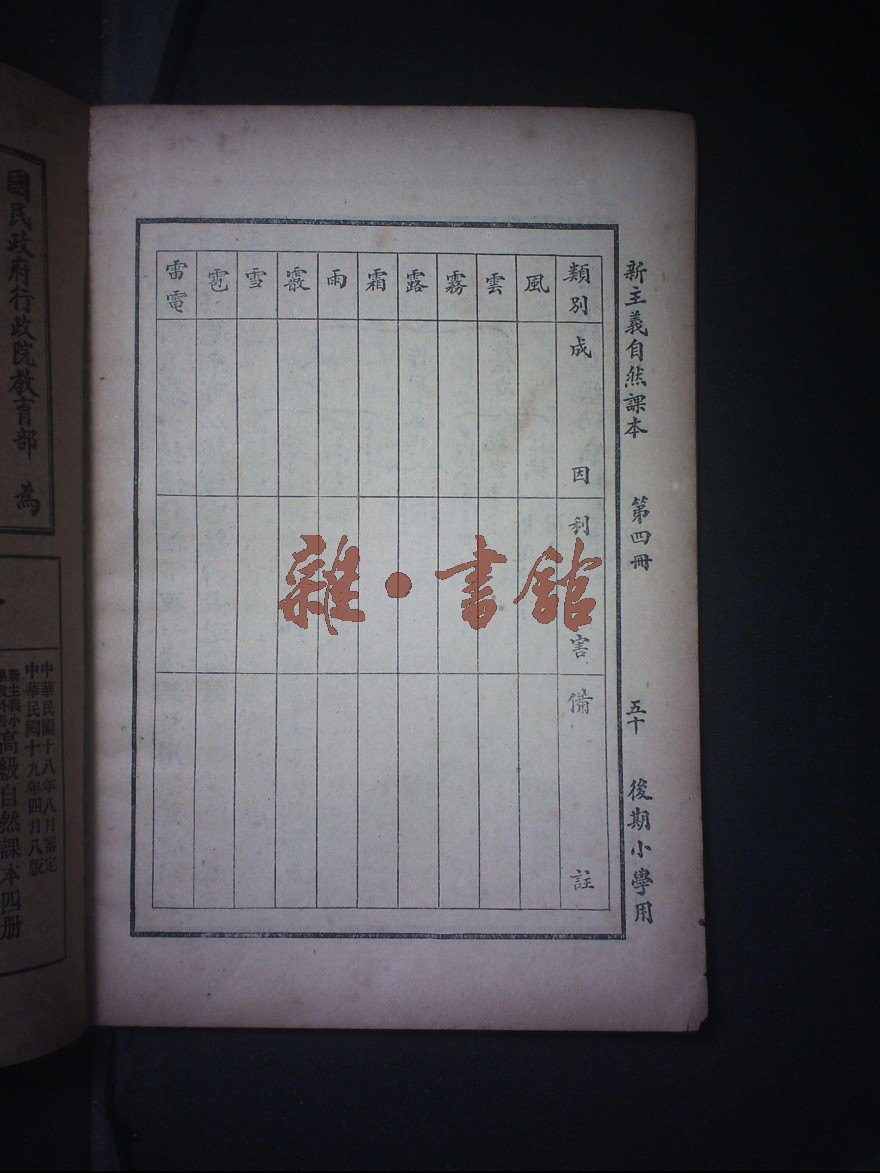 新主義自然課本 第四冊 五十 後期小學用
類別 成因 利害 備註
風
雲
霧
露
霜
雨
霰
雪
雹
雷電
雜・書館
國民政府行政院教育部 為
中華民國十八年八月審定
中華民國十九年四月八版
新主義小
高級自然課本四册